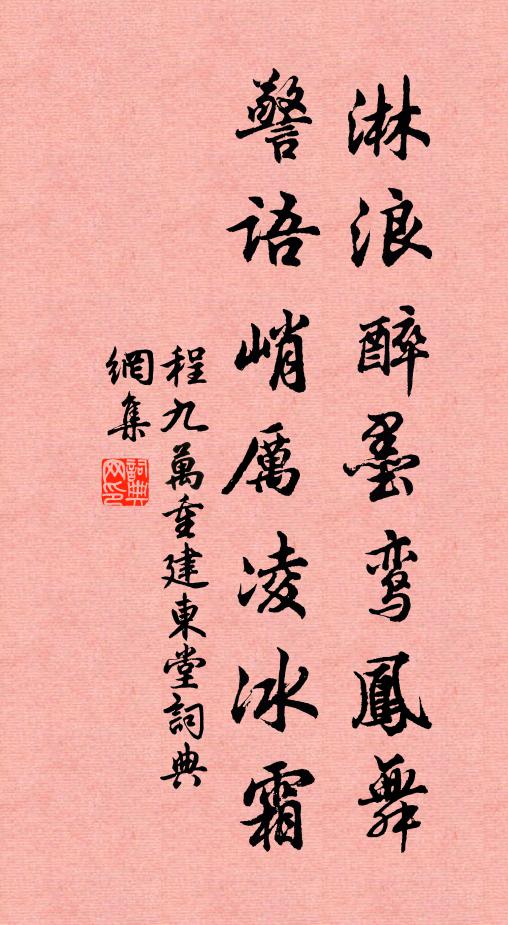 淋浪醉墨鸾鳳舞
警語峭厲凌冰霜
程九萬重建東堂詞典
網集
詞典
网印